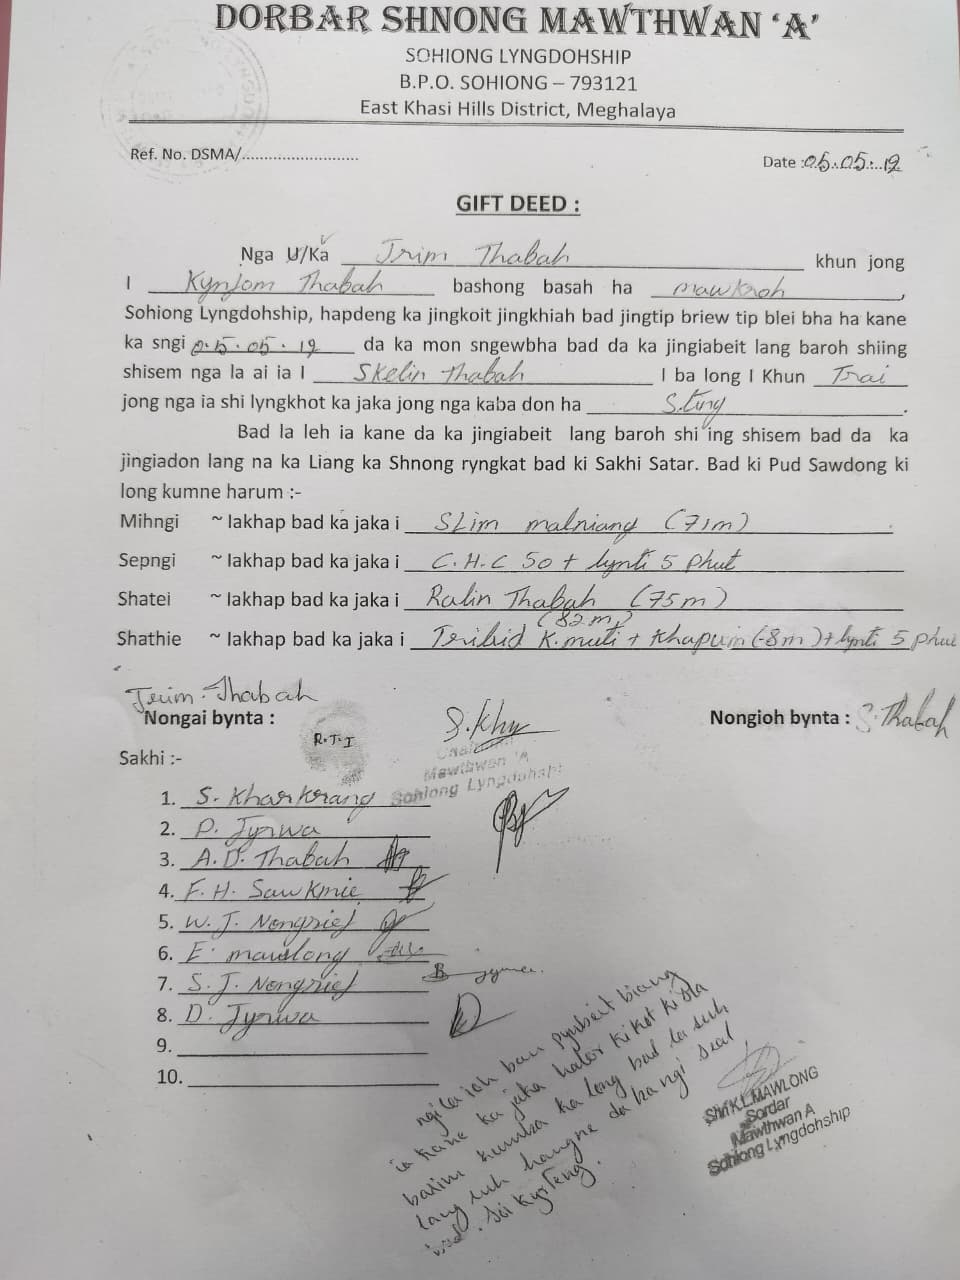 DORBAR SHNONG MAWTHWAN ‘A’
SOHIONG LYNGDOHSHIP
B.P.O. SOHIONG – 793121
East Khasi Hills District, Meghalaya
Ref. No. DSMA/..........................
Date :05.05.12
GIFT DEED :
Nga U/Ka Trim Thabah khun jong
I Kynjom Thabah bashong basah ha Mawkroh,
Sohiong Lyngdohship, hapdeng ka jingkoit jingkhiah bad jingtip briew tip blei bha ha kane
ka sngi 05.05.12 da ka mon sngewbha bad da ka jingiabeit lang baroh shiing
shisem nga la ai ia I Skelin Thabah I ba long I Khun Trai
jong nga ia shi lyngkhot ka jaka jong nga kaba don ha S.ting.
Bad la leh ia kane da ka jingiabeit lang baroh shi ing shisem bad da ka
jingiadon lang na ka Liang ka Shnong ryngkat bad ki Sakhi Satar. Bad ki Pud Sawdong ki
long kumne harum :-
Mihngi ~ Iakhap bad ka jaka i SLim malniang (71m)
Sepngi ~ Iakhap bad ka jaka i C.H.C 50 + lynti 5 phut
Shatei ~ Iakhap bad ka jaka i Ralin Thabah (75m)
(82m)
Shathie ~ Iakhap bad ka jaka i K.muti + Khapum (-8m) + lynti 5 phut
Trim. Thabah
Nongai bynta :
R.T.I
S.Khw
Nongioh bynta : S.Thabah
Mawthwan 'A
Sohiong Lyngdohship
Sakhi :-
1. S. Kharkrang
2. P. Jyrwa
3. A.D. Thabah
4. F.H. Sawkmie
5. W.J. Nongrief
6. E. mawlong
7. S.J. Nongrief
8. D. Jyrwa
9.
10.
ngi la ioh ban pynbeit biang
ia kane ka jaka halor ki kot ki sla
barim kumba ka long bad la suh
lang ruh hangne da kangi seal
Shri K.L.MAWLONG
Sordar
Mawthwan A
Sohiong Lyngdohship